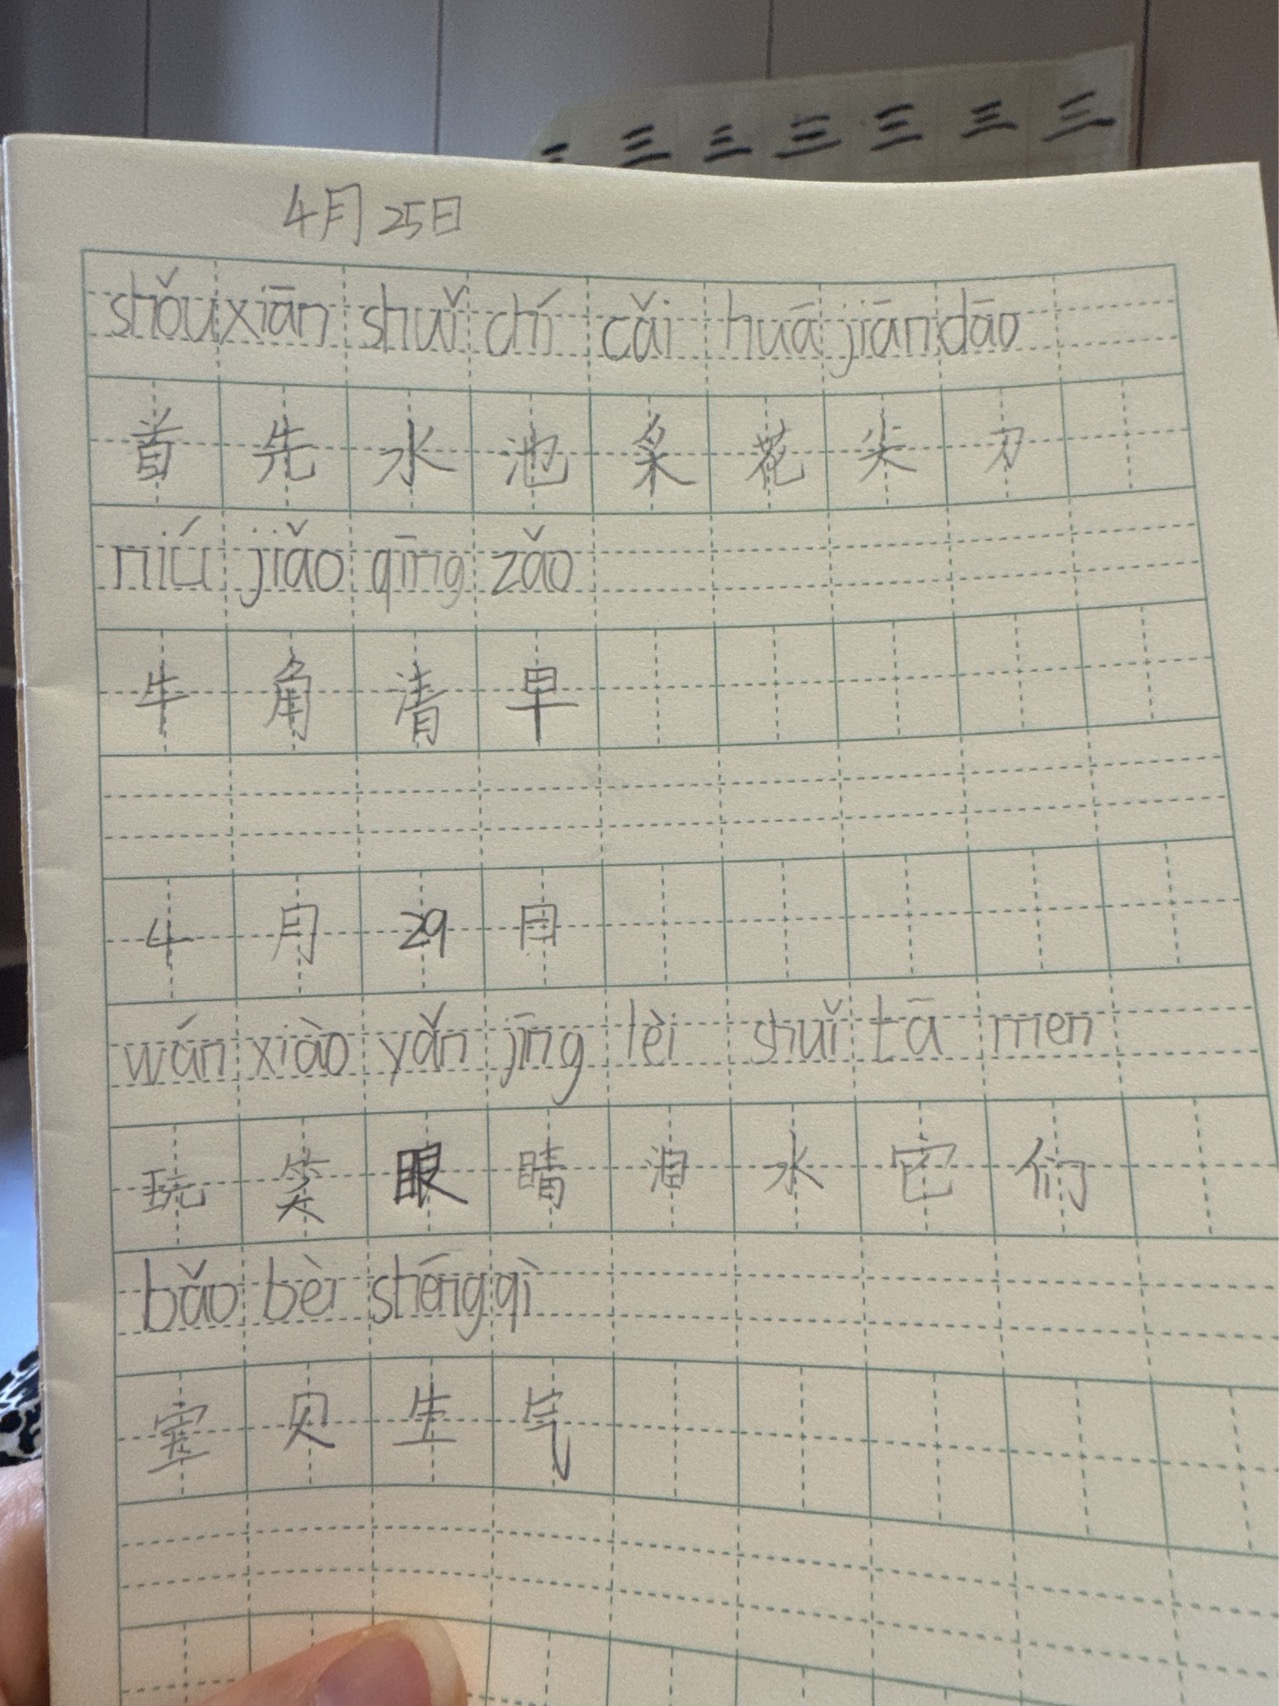 三 三 三 三 三 三
4月25日
shǒu xiān shuǐ chí cǎi huā jiān dāo
首 先 水 池 采 花 尖 刀
niú jiǎo qīng zǎo
牛 角 清 早
4 月 29 日
wán xiào yǎn jīng lèi shuǐ tā men
玩 笑 眼 睛 泪 水 它 们
bǎo bèi shēng qì
宝 贝 生 气